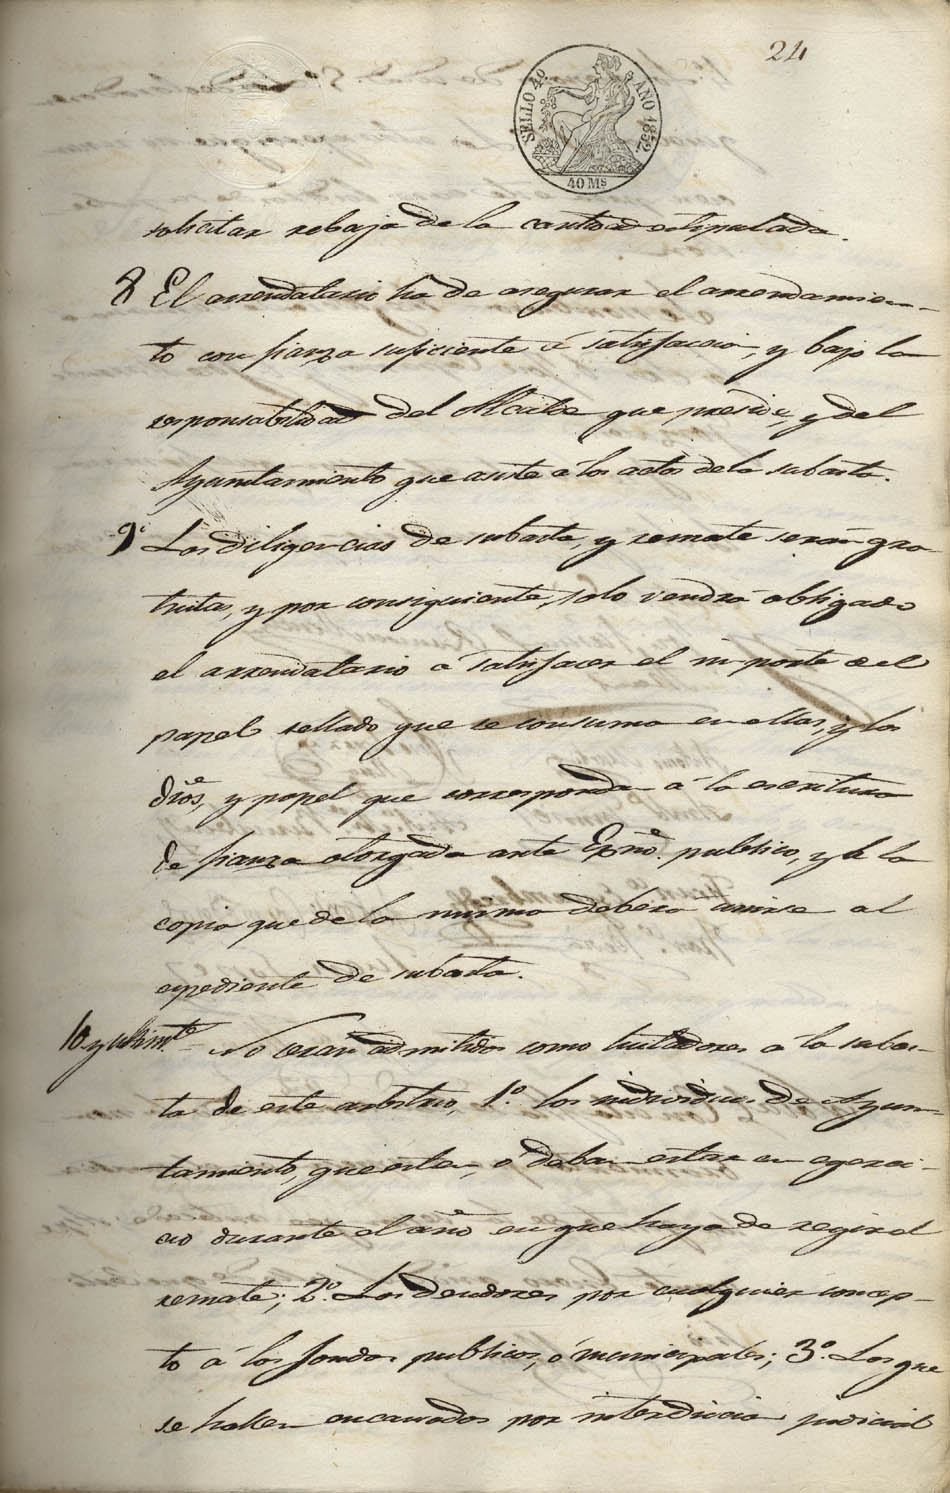 24
SELLO 4º. AÑO 1852.
40 Ms
solicitar rebaja de la cantidad estipulada.
8 El arrendatario ha de asegurar el arrendamien-
to con fianza suficiente á satisfaccion, y bajo la
responsabilidad del Alcalde que preside, y del
Ayuntamiento que asiste á los actos de la subasta.
9ª Las diligencias de subasta, y remate serán gra-
tuitas, y por consiguiente, solo vendrá obligado
el arrendatario á satisfacer el importe del
papel sellado que se consuma en ellas, y los
dros, y papel que corresponda á la escritura
de fianza otorgada ante Esno. publico, y de la
copia que de la misma deberá unirse al
espediente de subasta.
10. y ultimª. No seran admitidos como licitadores á la subas-
ta de este arbitrio, 1º. los individuos de Ayun-
tamiento, que esten, ó deban estar en egerci-
cio durante el año en que haya de regir el
remate; 2º. Los deudores por cualquier concep-
to á los fondos publicos, ó municipales; 3º. Los que
se hallen encausados por interdiccion judicial